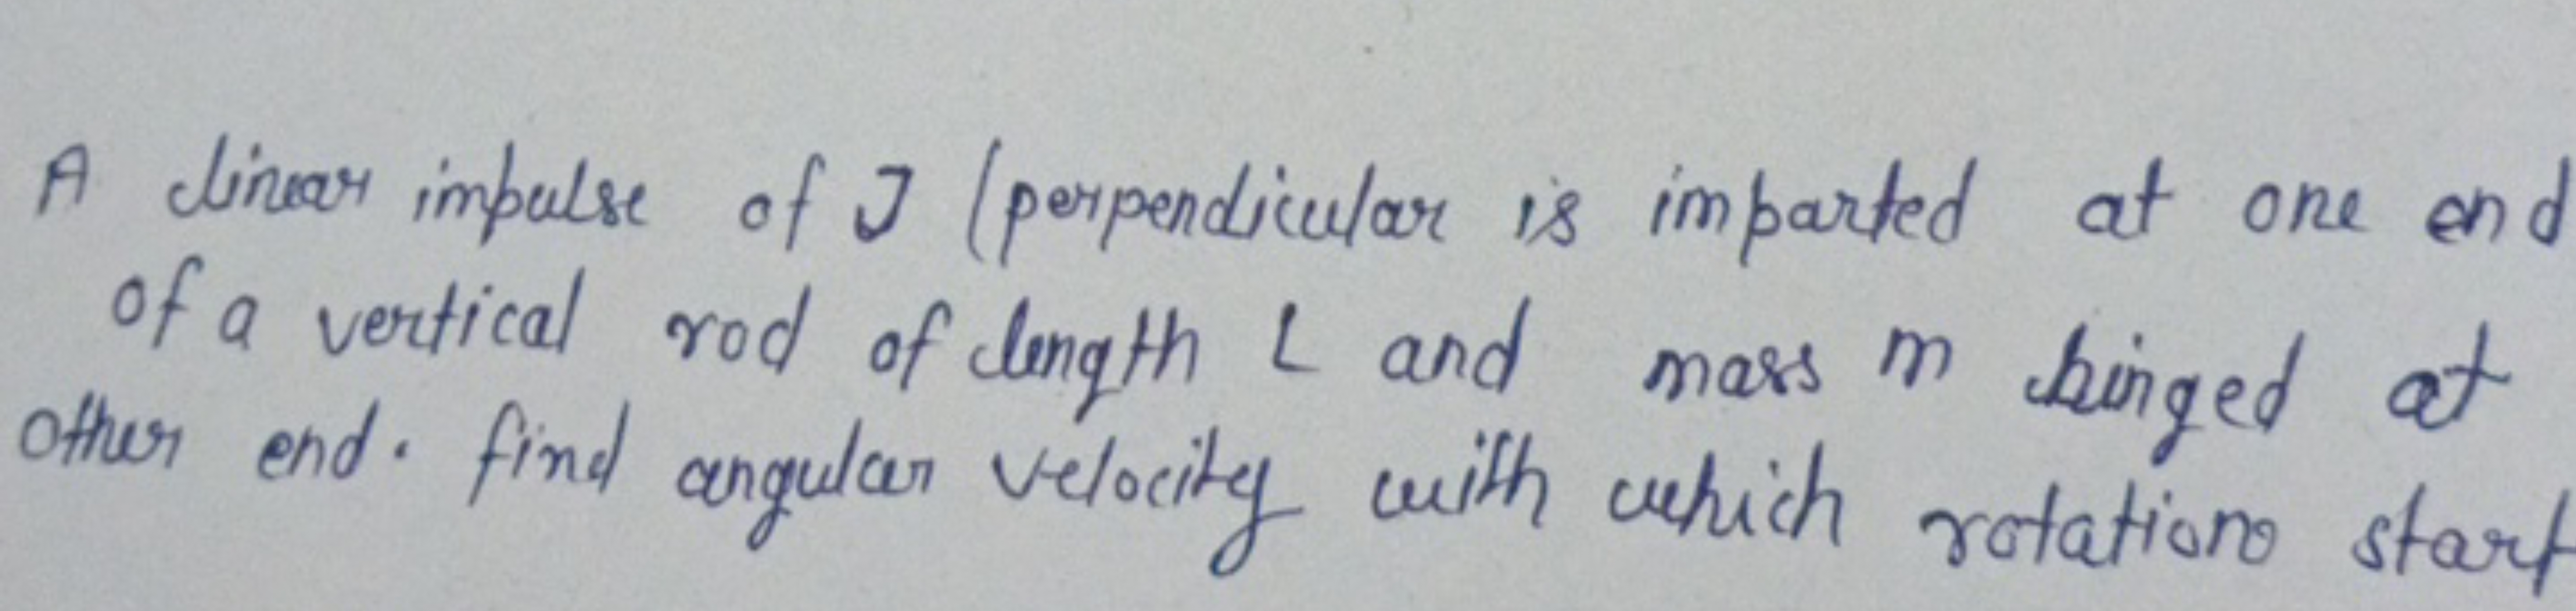 A linear impulse of J (perpendicular is imparted at one end
of a vertical rod of length L and mass m hinged at
other end. find angular velocity with which rotation start